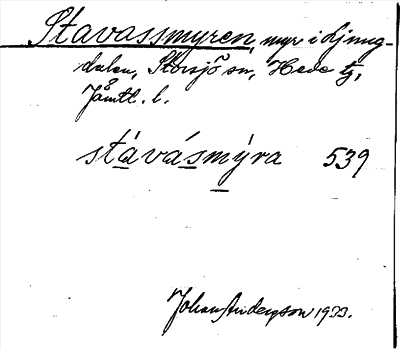 Stavassmyren, myr i Ljung-
dalen, Storsjö sn, Hede tg,
Jämtl. l.
stávásmýra 539
Johan Anderson 1933.